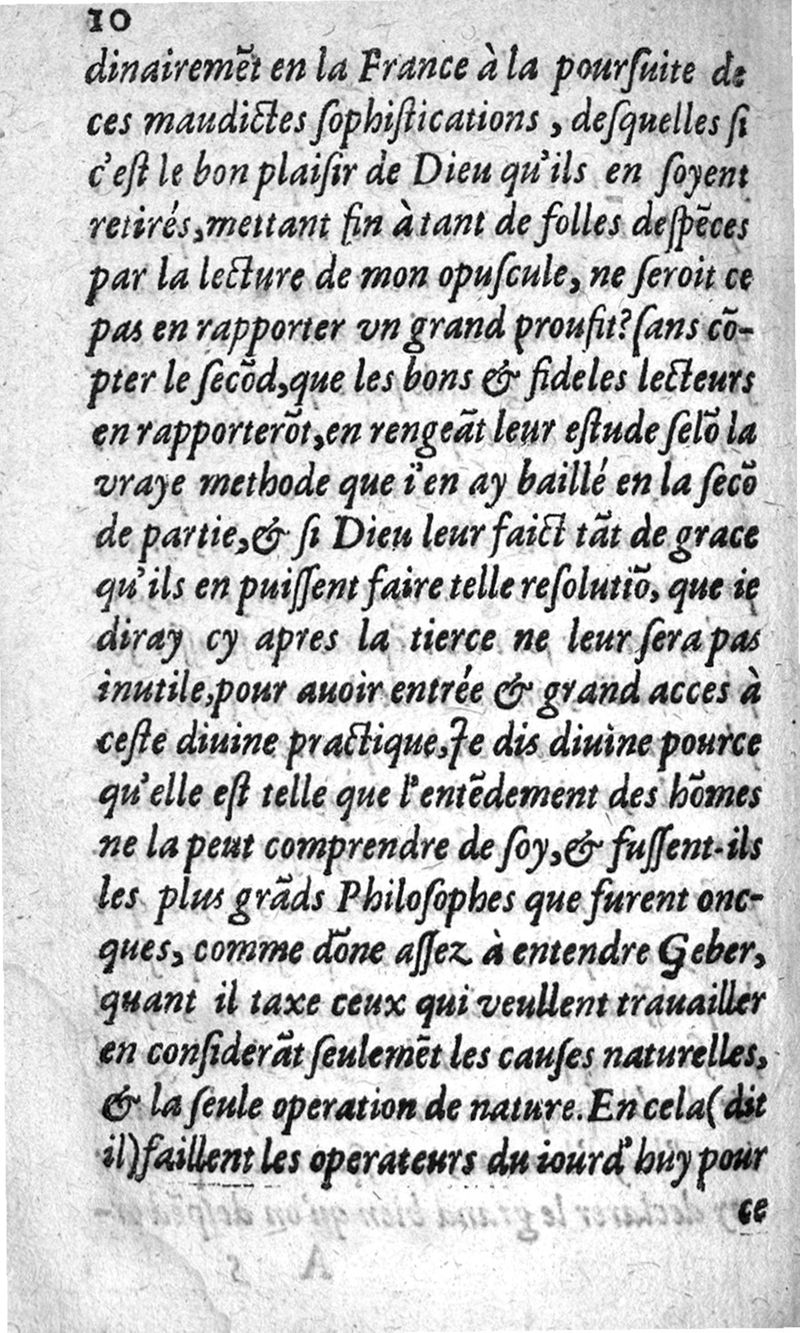 10
dinairemēt en la France à la pourſuite de
ces maudictes ſophiſtications , deſquelles ſi
c'eſt le bon plaiſir de Dieu qu'ils en ſoyent
retirés,mettant fin à tant de folles deſpēces
par la lecture de mon opuſcule, ne ſeroit ce
pas en rapporter vn grand proufit?ſans cō-
pter le ſecōd,que les bons & fideles lecteurs
en rapporterōt,en rengeāt leur eſtude ſelō la
vraye methode que i'en ay baillé en la ſecō
de partie,& ſi Dieu leur faict tāt de grace
qu'ils en puiſſent faire telle reſolutiō, que ie
diray cy apres la tierce ne leur ſera pas
inutile,pour auoir entrée & grand acces à
ceſte diuine practique,Je dis diuine pource
qu'elle eſt telle que l'entēdement des hōmes
ne la peut comprendre de ſoy,& fuſſent-ils
les plus grāds Philoſophes que furent onc-
ques, comme dōne aſſez à entendre Geber,
quant il taxe ceux qui veullent trauailler
en conſiderāt ſeulemēt les cauſes naturelles,
& la ſeule operation de nature. En cela(dit
il)faillent les operateurs du iourd'huy pour
ce